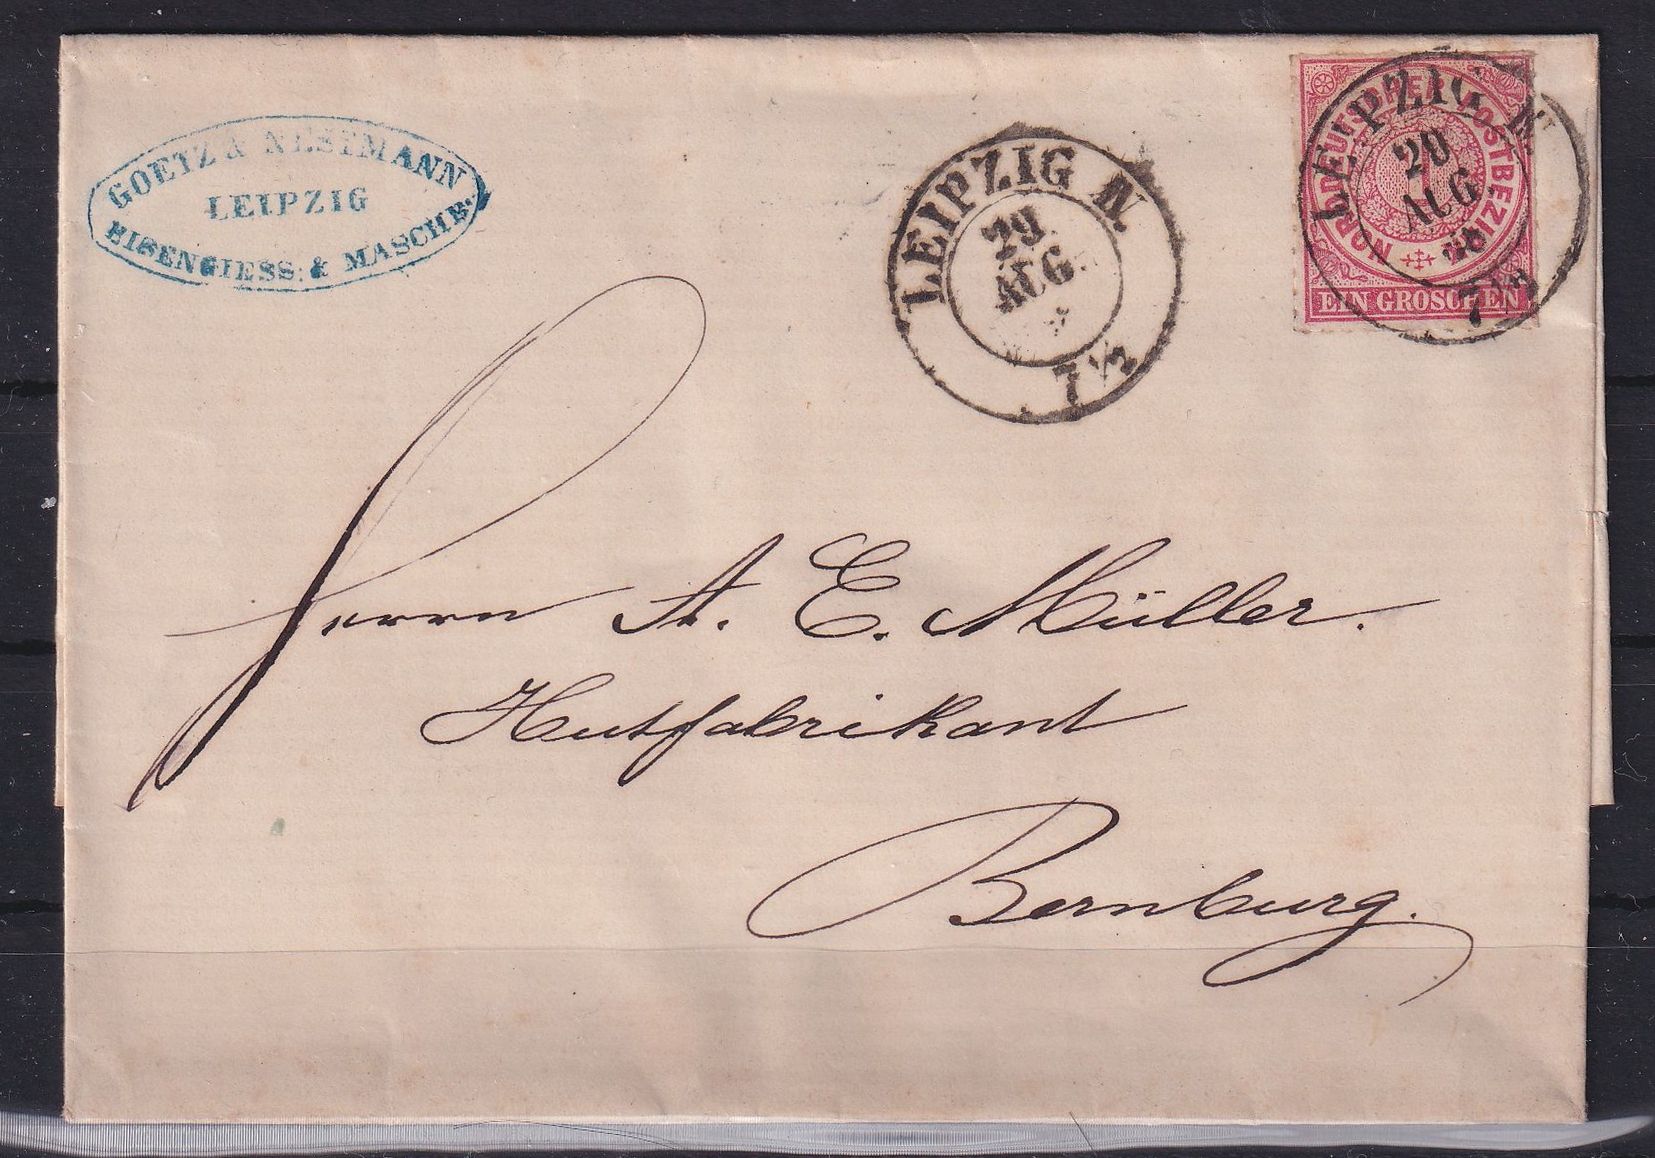 GOETZ & NESTMANN
LEIPZIG
EISENGIESS: & MASCHB:
LEIPZIG IV.
20
AUG
7 ½
NORDDEUTSCHER POSTBEZIRK
1
EIN GROSCHEN
LEIPZIG IV
20
AUG
68
7 ½
Herrn A. E. Müller.
Hutfabrikant
Bernburg.